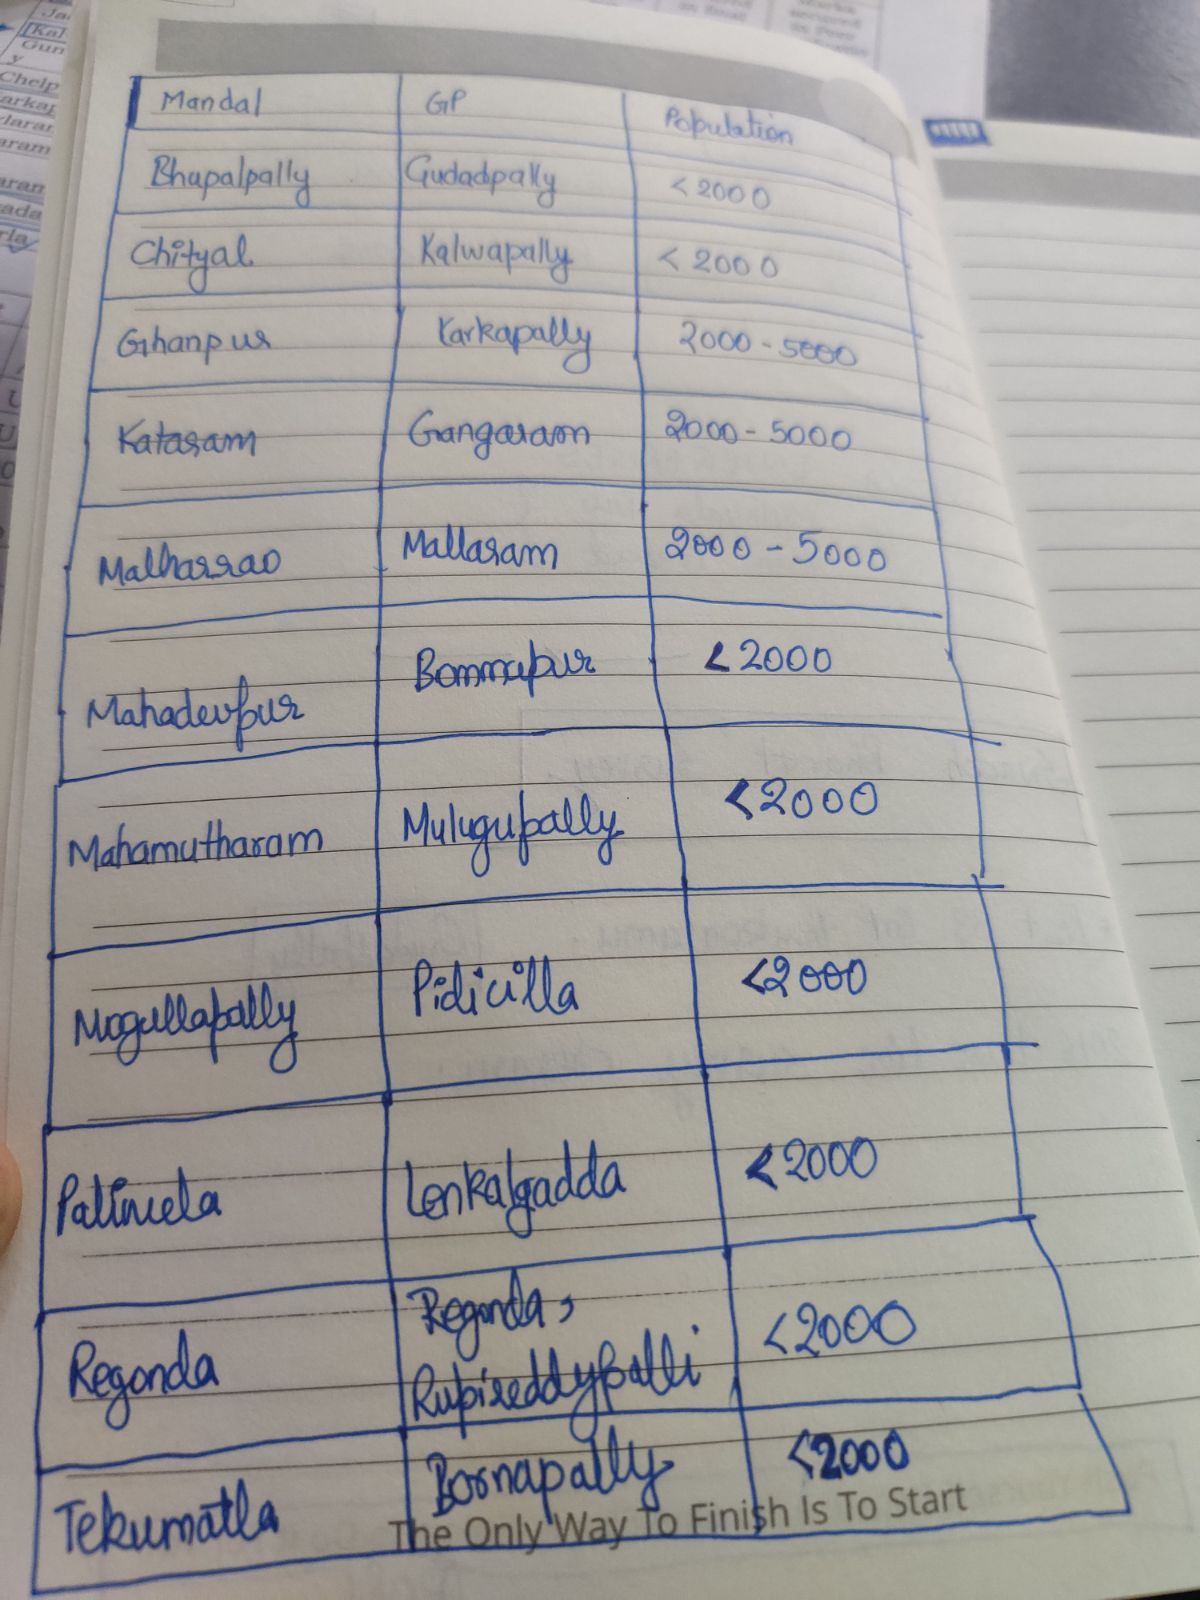 Mandal GP Population
Bhupalpally Gudadpally <2000
Chityal Kalwapally <2000
Ghanpur Karkapally 2000-5000
Kataram Gangaram 2000-5000
Malharrao Mallaram 2000-5000
Mahadevpur Bommapur <2000
Mahamutharam Mulugupally <2000
Mogullapally Pidicilla <2000
Palimela Lenkalgadda <2000
Regonda Regonda, <2000
Rupireddypalli
Tekumatla Bornapally <2000
The Only Way To Finish Is To Start
Chelp